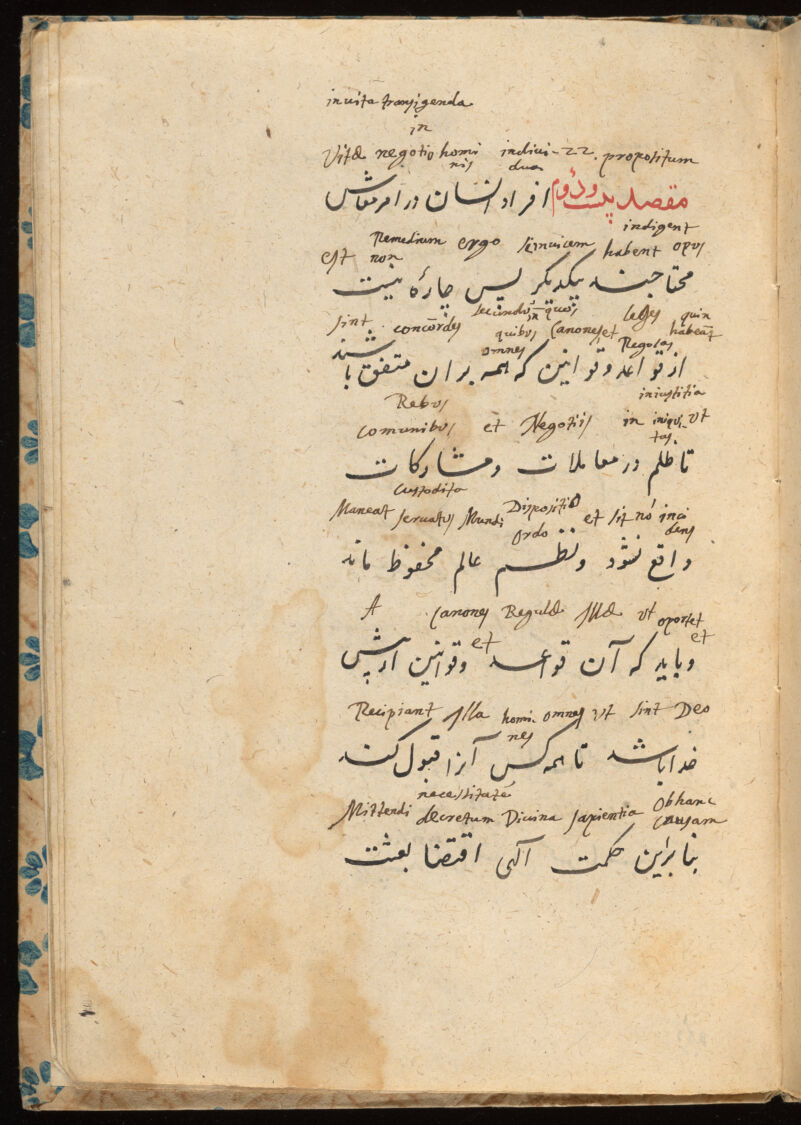 in vita transigenda
in
Vitæ negotio homi indivi- 22. propositum
nis dua
مقصد بیست و دوم افراد انسان در امر معاش
indigent
Remedium ergo semuicem habent opus
est non
محتاجند بیکدیگر پس چارهٔ نیست
secundū quos leges quin
in
sint concordes quibus Canones et habeāt
omnes Regulas
از قواعد و قوانین که همه بران متفق باشند
Rebus iniustitia
comunibus et Negotiis in iniqui- ut
tas
تا ظلم در معاملات و مشارکات
Custodita
Maneat servatus Mundi Dispositio et sit nō inci
ordo dens
واقع نشود و نظم عالم محفوظ ماند
A Canones Regulæ Illæ ut oportet
et et
و باید که آن قواعد و قوانین از پیش
Recipiant Illa homi- omnes ut sint Deo
nes
خدا باشد تا همه کس آنرا قبول کنند
necessitatē
Mittendi decretum Divina sapientia Ob hanc
causam
بنابراین حکمت آلهی اقتضا بعثت